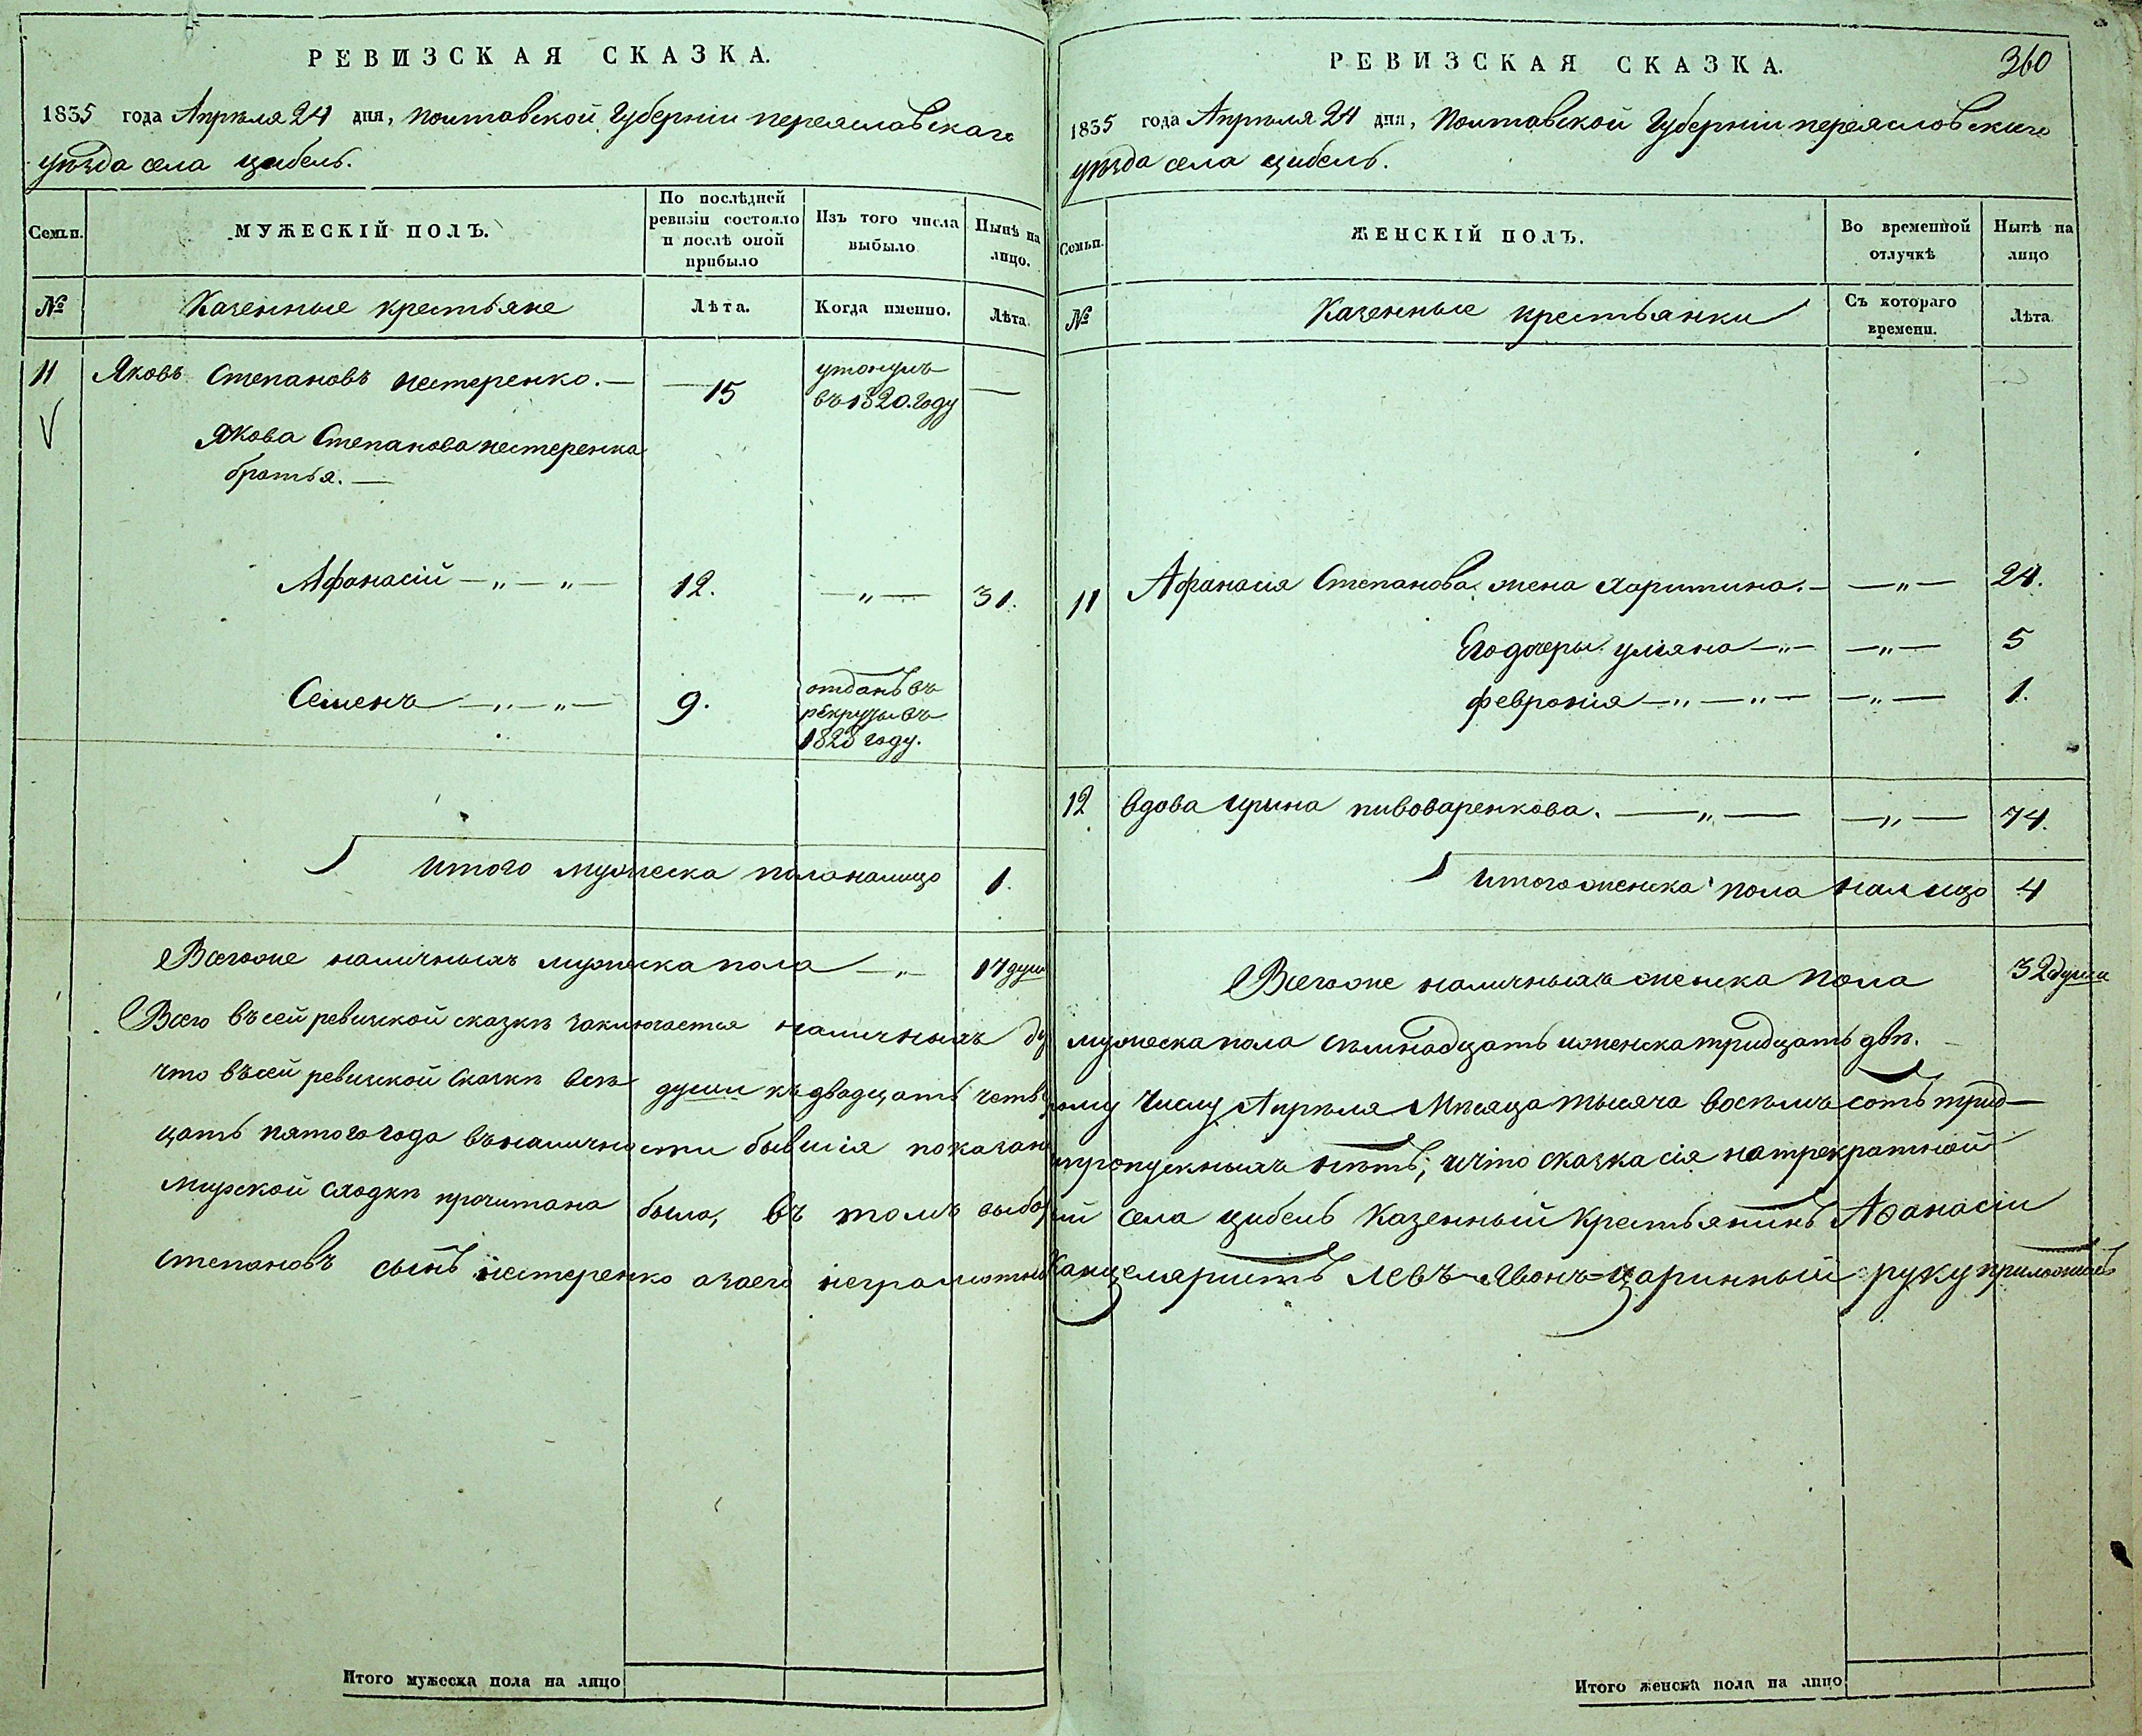 РЕВИЗСКАЯ СКАЗКА.
1835 года Апрѣля 24 дня, полтавской Губерніи переяславскаго
уѣзда села цибель.
Семьи.
МУЖЕСКІЙ ПОЛЪ.
По послѣдней
ревизіи состояло
и послѣ оной
прибыло
Изъ того числа
выбыло
Нынѣ на
лицо.
№
Казенные крестьяне
Лѣта.
Когда именно.
Лѣта
11 Яковъ Степановъ нестеренко. — 15 утонулъ
въ 1820. году —
Якова Степанова нестеренка
братья. —
Афанасій — „ — „ — 12. — „ — 31.
Семенъ — „ — „ — 9. отданъ въ
рекруты въ
1828 году.
итого мужеска пола налицо 1.
Всегоже наличныхъ мужеска пола — „ — 17 душ
РЕВИЗСКАЯ СКАЗКА.
360
1835 года Апрѣля 24 дня, полтавской Губерніи переясловскаго
уѣзда села цибель.
Семьи.
ЖЕНСКІЙ ПОЛЪ.
Во временной
отлучкѣ
Нынѣ на
лицо
№
Казенные крестьянки
Съ котораго
времени.
Лѣта
11 Афанасія Степанова жена харитина. — — „ — 24.
Его дочеры уліяна — „ — — „ — 5
февронія — „ — „ — — „ — 1.
12 вдова ирина пивоваренкова. — „ — — „ — 74.
итого женска пола налицо 4
Всегоже наличныхъ женска пола 32 души
Всего въ сей ревизкой сказкѣ заключается наличныхъ ду мужеска пола семнадцать и женска тридцать двѣ.
что въ сей ревизкой сказкѣ всѣ души къ двадцать четвертому числу Апрѣля Мѣсяца тысяча восѣмъ сотъ трид-
цать пятого года въ наличности бывшія показаны и пропускныхъ нѣтъ; и что сказка сія на трекратной
мирской сходкѣ прочитана была, въ томъ выборный села цибель казенный крестьянинъ Аѳанасіи
степановъ сынъ нестеренко а за его неграмотны Канцеляристъ Левъ Явонъ=Царинный руку приложилъ
Итого мужеска пола на лицо
Итого женска пола на лицо